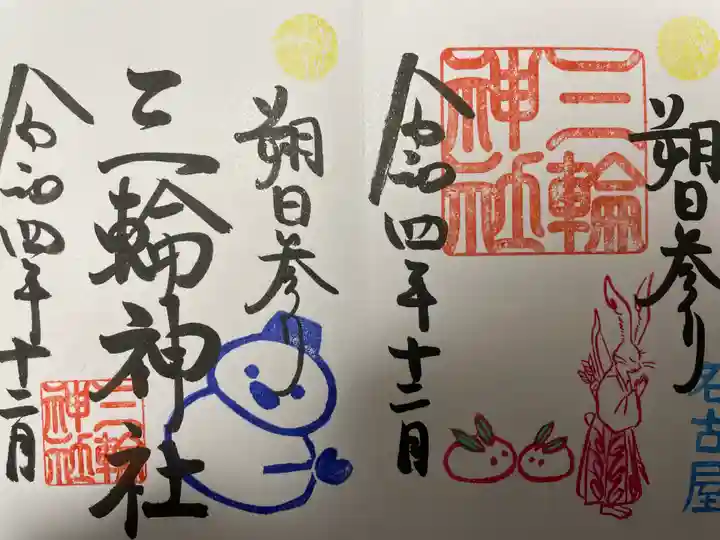 朔日参り
三輪神社
名古屋
令和四年十二月
朔日参り
三輪神社
三輪神社
令和四年十二月